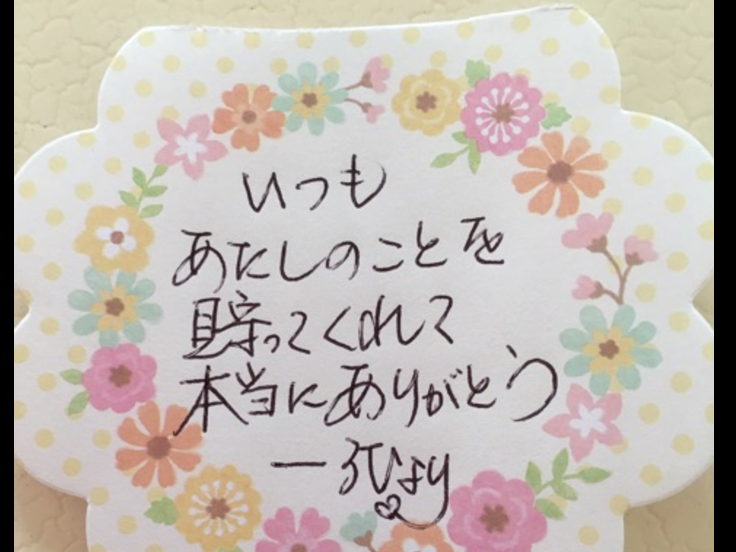 いつも
あたしのことを
貯ってくれて
本当にありがとう
ー みひょり